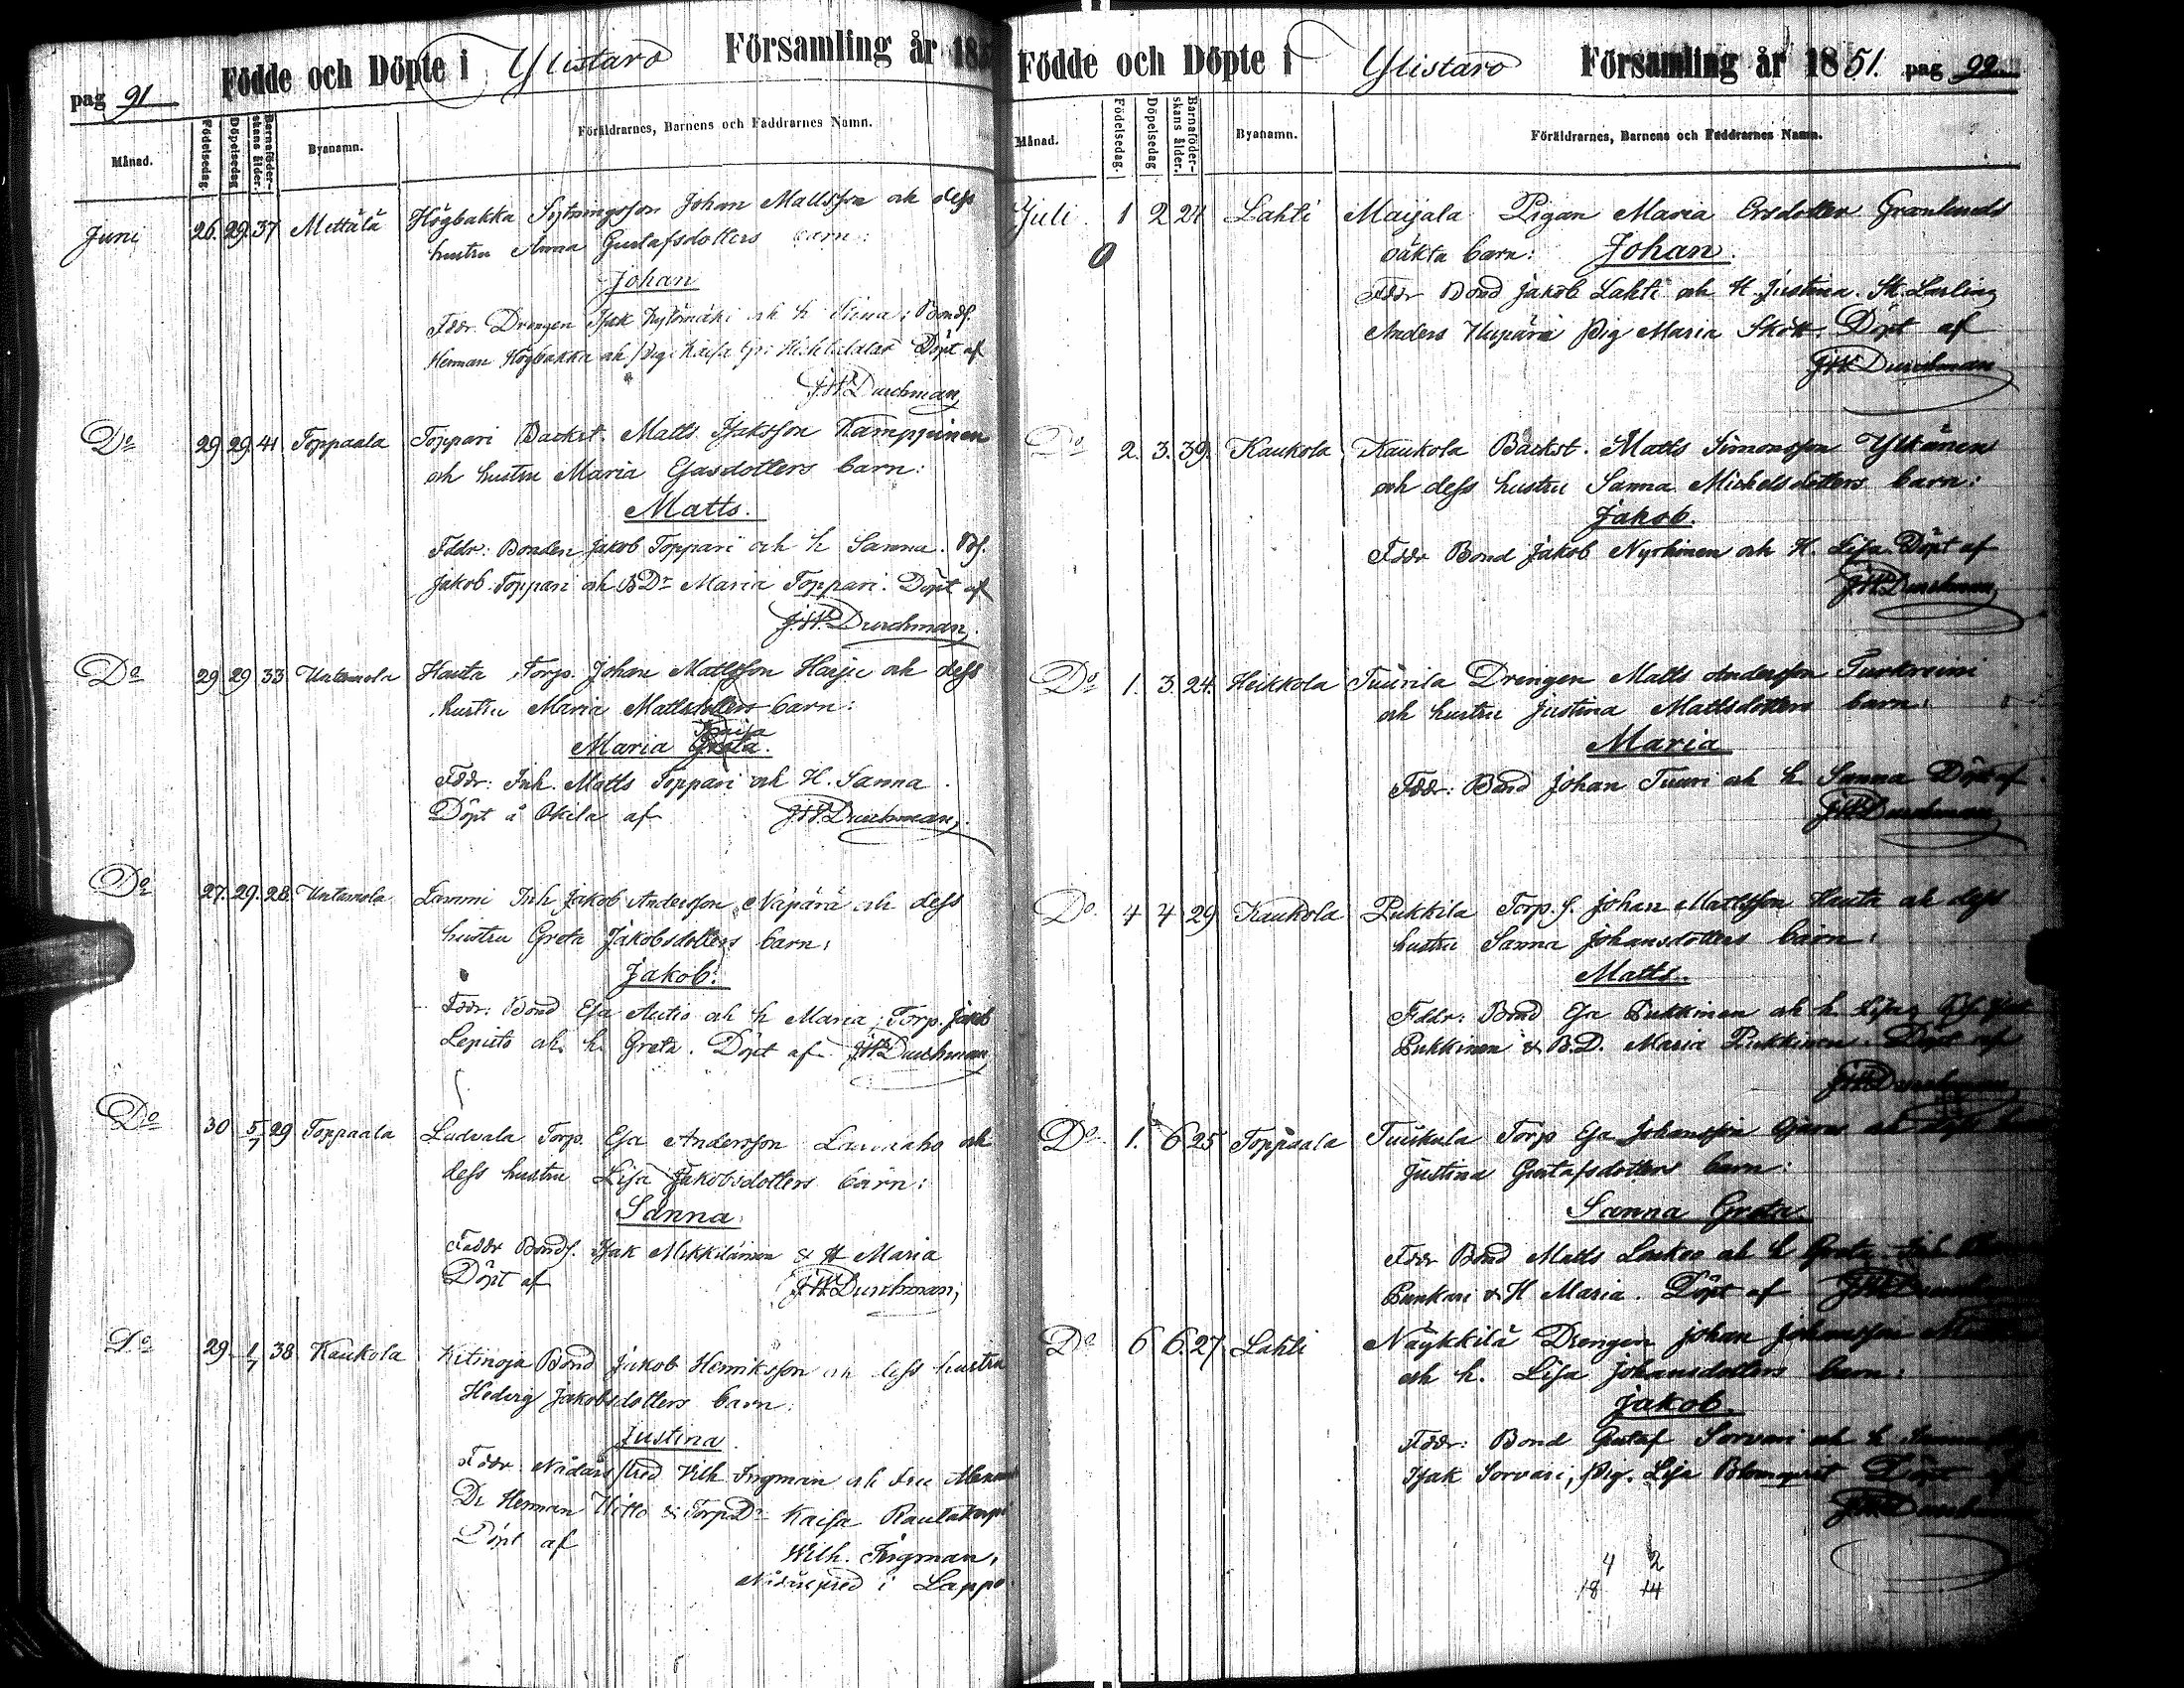 pag 91 Födde och Döpte i Ylistaro Församling år 185
Månad. Födelsedag. Döpelsedag Barnaföder-skans ålder. Byanamn. Föräldrarnes, Barnens och Faddrarnes Namn.
Juni 26. 29. 37 Mettälä Högbakka Sytningsson Johan Mattsson och dess
hustru Anna Gustafsdotters barn:
Johan
Fddr. Drengen Isak och h Bondf.
Herman Högbakka och Pig. Kaisa Döpt af
J.W. Durchman
Do 29 29. 41 Toppaala Toppari Backst. Matts Isaksson Kamppinen
och hustru Maria Esasdotters barn:
Matts.
Fddr: Bonden Jakob Toppari och h Sanna. Bf.
Jakob Toppari och BDr Maria Toppari. Döpt af
J.W. Durchman.
Do 29 29 33 Untamola Hauta Torp. Johan Mattsson Harju och dess
hustru Maria Mattsdotters barn:
Kaisa
Maria Greta.
Fddr: Inh. Matts Toppari och H. Sanna
Döpt å Okila af J.W. Durchman,
Do 27. 29. 28. Untamola Lammi Inh Jakob Andersson Näpärä och dess
hustru Greta Jakobsdotters barn:
Jakob.
Fddr: Bond Esa Autio och h Maria; Torp. Jakob
Lepistö och h. Greta. Döpt af J.W. Durchman
Do 30 5/7 29 Toppaala Ladvala Torp. Esa Andersson och
dess hustru Lisa Jakobsdotters barn:
Sanna
Fddr Bondf. Isak Mikkilänen & H Maria
Döpt af J.W. Durchman,
Do 29 1/7 38 Kaukola Kitinoja Bond Jakob Henriksson och dess hustru
Hedvig Jakobsdotters barn:
Justina
Fddr: Wilh. Ingman och Fru
Dr Herman & Torp.Dr Kaisa
Döpt af Wilh. Ingman,
i Lappo.
Födde och Döpte i Ylistaro Församling år 1851. pag 92
Månad. Födelsedag. Döpelsedag Barnaföder-skans ålder. Byanamn. Föräldrarnes, Barnens och Faddrarnes Namn.
Juli 1 2 24 Lahti Maijala Pigan Maria Ersdotter Granlunds
oäkta barn: Johan.
Fddr Bond Jakob Lahti och H. Justina. Sk. Lärling
Anders Pig Maria Sköt. Döpt af
J.W. Durchman
Do 2. 3. 39. Kaukola Kaukola Backst. Matts Simonsson Ylkänen
och dess hustru Sanna Michelsdotters barn:
Jakob.
Fddr Bond Jakob Nyrhinen och H. Lisa. Döpt af
J.W. Durchman,
Do 1. 3. 24. Heikkola Tuurila Drengen Matts Andersson
och hustru Justina Mattsdotters barn:
Maria
Fddr: Bond Johan Tuuri och h Sanna Döpt af
J.W. Durchman,
Do. 4 4 29 Kaukola Pukkila Torp. f. Johan Mattsson Hauta och dess
hustru Sanna Johansdotters barn:
Matts.
Fddr: Bond Esa Pukkinen och h Lisa
Pukkinen & B.D. Maria Pukkinen. Döpt af
J.W. Durchman
Do 1. 6 25 Toppaala Tuiskula Torp Esa Johansson och dess
Justina Gustafsdotters barn:
Sanna Greta.
Fddr Bond Matts Luokoo och h Greta. Inh
Punkari & H Maria. Döpt af J.W. Durchman
Do 6 6. 27 Lahti Näykkilä Drengen Johan Johansson
och h. Lisa Johansdotters barn:
Jakob.
Fddr: Bond Gustaf Sorvari och h
Isak Sorvari, Pig. Lisa Blomqvist Döpt af
J.W. Durchman
4 2
18 14